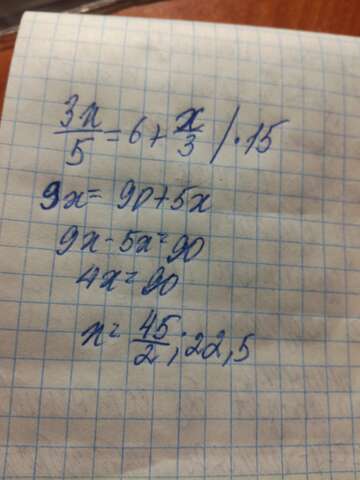 3x/5 = 6 + x/3 / · 15
9x = 90 + 5x
9x - 5x = 90
4x = 90
x = 45/2 ; 22,5